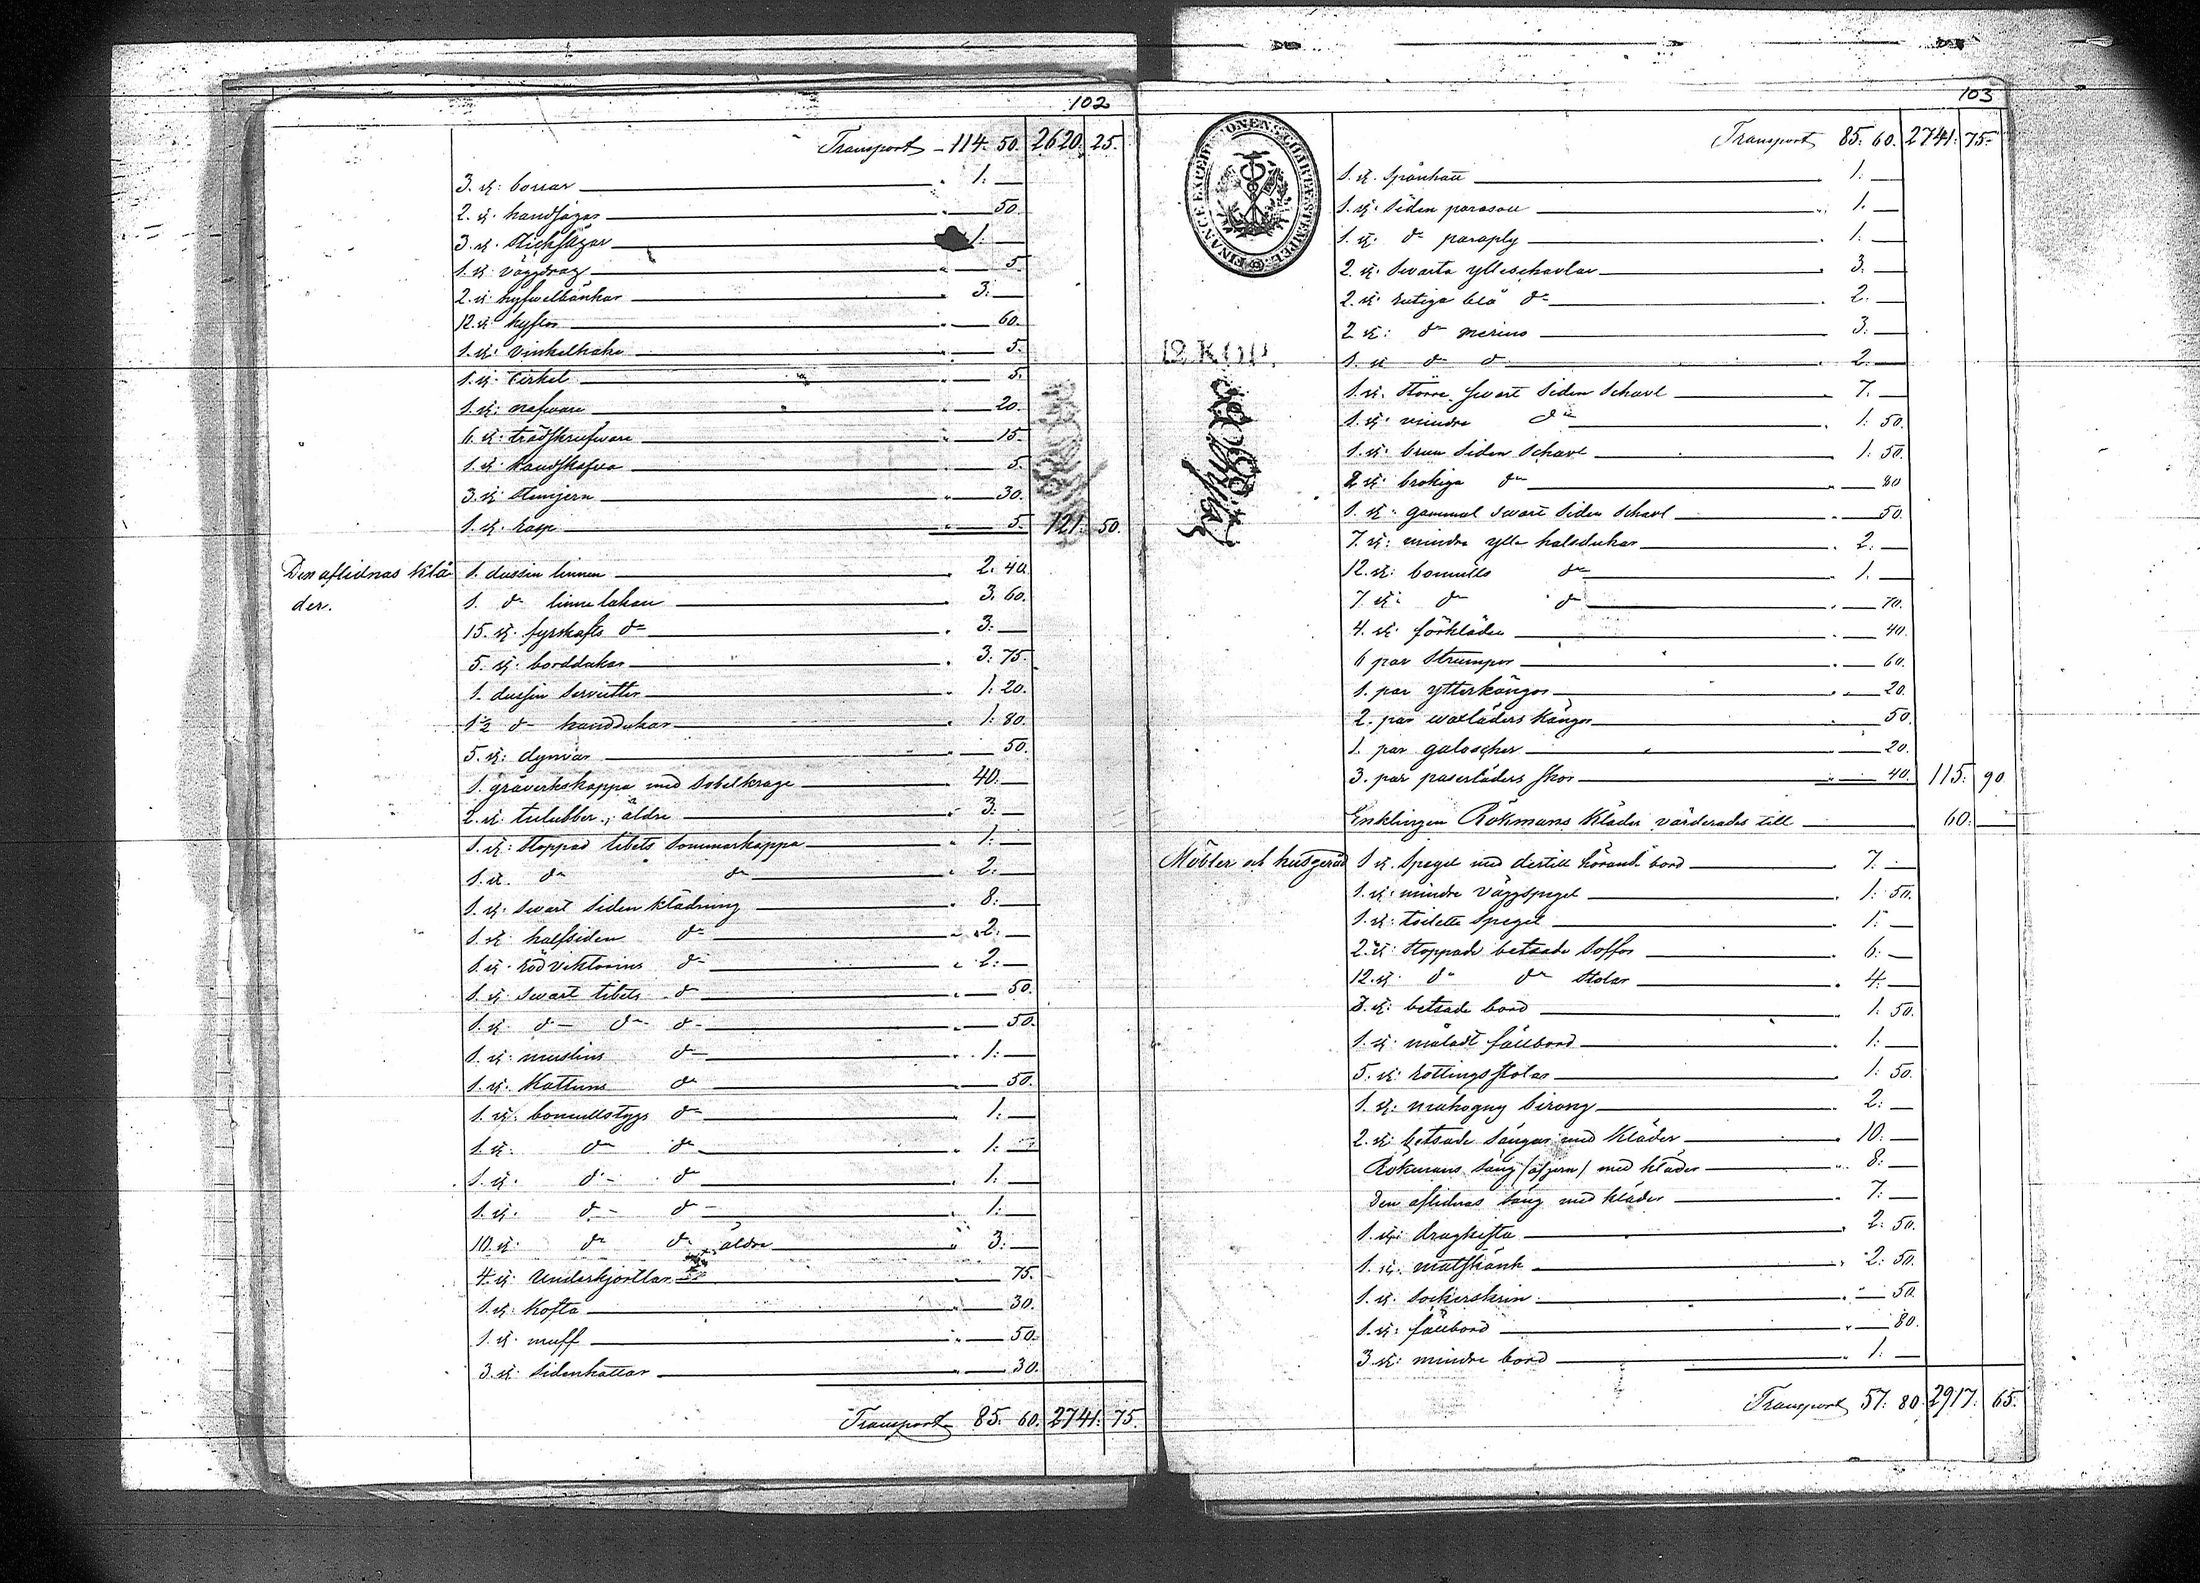 102
Transport 114. 50. 2620. 25.
3. st: borrar 1.
2. st: handsågar 50.
3. st. sticksågar 1.
1. st. väggdrag 5.
2. st. hyfvelbänkar 3.
12. st. hyflar 60.
1. st: vinkelhake 5.
1. st. Cirkel 5.
1. st: nafvare 20.
6. st. trädskrufvar 15.
1. st. bandskafva 5.
3. st. stämjern 30.
1. st. rasp 5. 121. 50.
Den aflidnas klä
der.
1. dussin linnen 2. 40.
1. d:o linne lakan 3. 60.
15. st. fyrskafts d:o 3.
5. st. borddukar 3. 75.
1. dussin servietter 1. 20.
1½ d:o handdukar 1. 80.
5. st: dynvar 50.
1. gråverkskappa med sobelkrage 40.
2. st. tulubber, äldre 3.
1. st. stoppad tibets sommarkappa 1.
1. st. d:o d:o 2.
1. st. svart siden klädning 8.
1. st. halfsiden d:o 2.
1. st. röd viktorins d:o 2.
1. st. svart tibets d:o 50.
1. st. d:o d:o d:o 50.
1. st. muslins d:o 1.
1. st. Kattuns d:o 50.
1. st. bomullstygs d:o 1.
1. st. d:o d:o 1.
1. st. d:o d:o 1.
1. st. d:o d:o 1.
10. st. d:o d:o äldre 3.
4. st. Underkjortlar 75.
1. st. Kofta 30.
1. st. muff 50.
3. st. sidenhattar 30.
Transport 85. 60. 2741. 75.
103
FINANCE EXPEDITIONENS CHARTÆ STEMPEL
12. KOP.
Transport 85. 60. 2741. 75.
1. st. spånhatt 1.
1. st. siden parasoll 1.
1. st. d:o paraply 1.
2. st. svarta ylleschavlar 3.
2. st. rutiga blå d:o 2.
2. st: d:o merino 3.
1. st d:o d:o 2.
1. st. större svart siden schavl 7.
1. st. mindre d:o 1. 50.
1. st. brun siden schavl 1. 50.
2 st. brokiga d:o 80
1. st. gammal svart siden schavl 50.
7. st. mindre ylle halsdukar 2.
12. st: bomulls d:o 1.
7. st. d:o d:o 70.
4. st. förkläden 40.
6 par strumpor 60.
1. par ytterkängor 20.
2. par vaxläders kängor 50.
1. par galoscher 20.
3. par paserläders skor 40. 115. 90.
Enklingen Rökmans kläder värderades till 60.
Möbler och husgeråd
1 st. spegel med dertill hörand. bord 7.
1. st: mindre väggspegel 1. 50.
1. st: toilette spegel 1.
2. st. stoppade betsade soffor 6.
12. st. d:o d:o stolar 4.
3. st: betsade bord 1. 50.
1. st. måladt fällbord 1.
5. st: rottingsstolar 1. 50.
1. st: mahogny birong 2.
2. st. betsade sängar med kläder 10.
Rökmans säng (af jern) med kläder 8.
Den aflidnas säng med kläder 7.
1. st. dragkista 2. 50.
1. st. matskänk 2. 50.
1. st. sockerskrin 50.
1. st: fällbord 80.
3. st: mindre bord 1.
Transport 57. 80. 2917. 65.